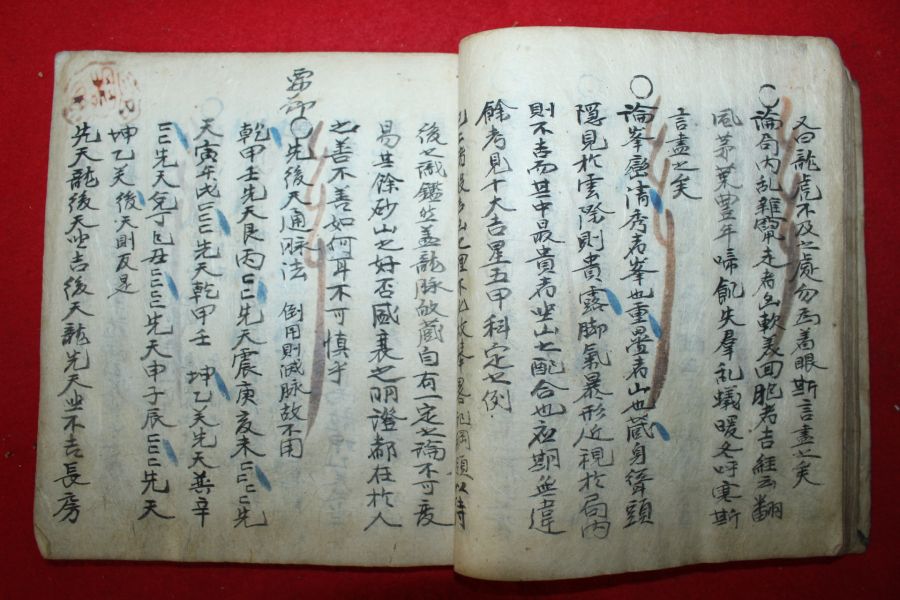 又曰龍虎不及之處勿爲着眼斯言盡矣
○論局内乱雜竄走者 軟美回胞者吉經云翻
風茅葉豊年啼飢失羣乱蟻暖冬呼寒斯
言盡之矣
○論峯巒清秀者峯也重疊者山也藏身聳頭
隱見於雲際則貴露脚氣暴形近視於局内
則不吉而其中最貴者坐山之配合也應期無違
餘考見十大吉星五甲科定之例
後之 鑑坐盖龍脉 藏自有一定之論不可度
易其餘砂山之好否盛衰之 都在於人
之善不善如何耳不可慎乎
○先後天通脉法 倒用則滅脉故不用
乾甲壬先天艮丙 先天震庚亥未 先
天寅午戌 先天乾甲壬 坤乙先天巽辛
先天兌丁巳丑 先天申子辰 先天
坤乙 後天則反是
先天龍後天坐吉後天龍先天坐不吉長房